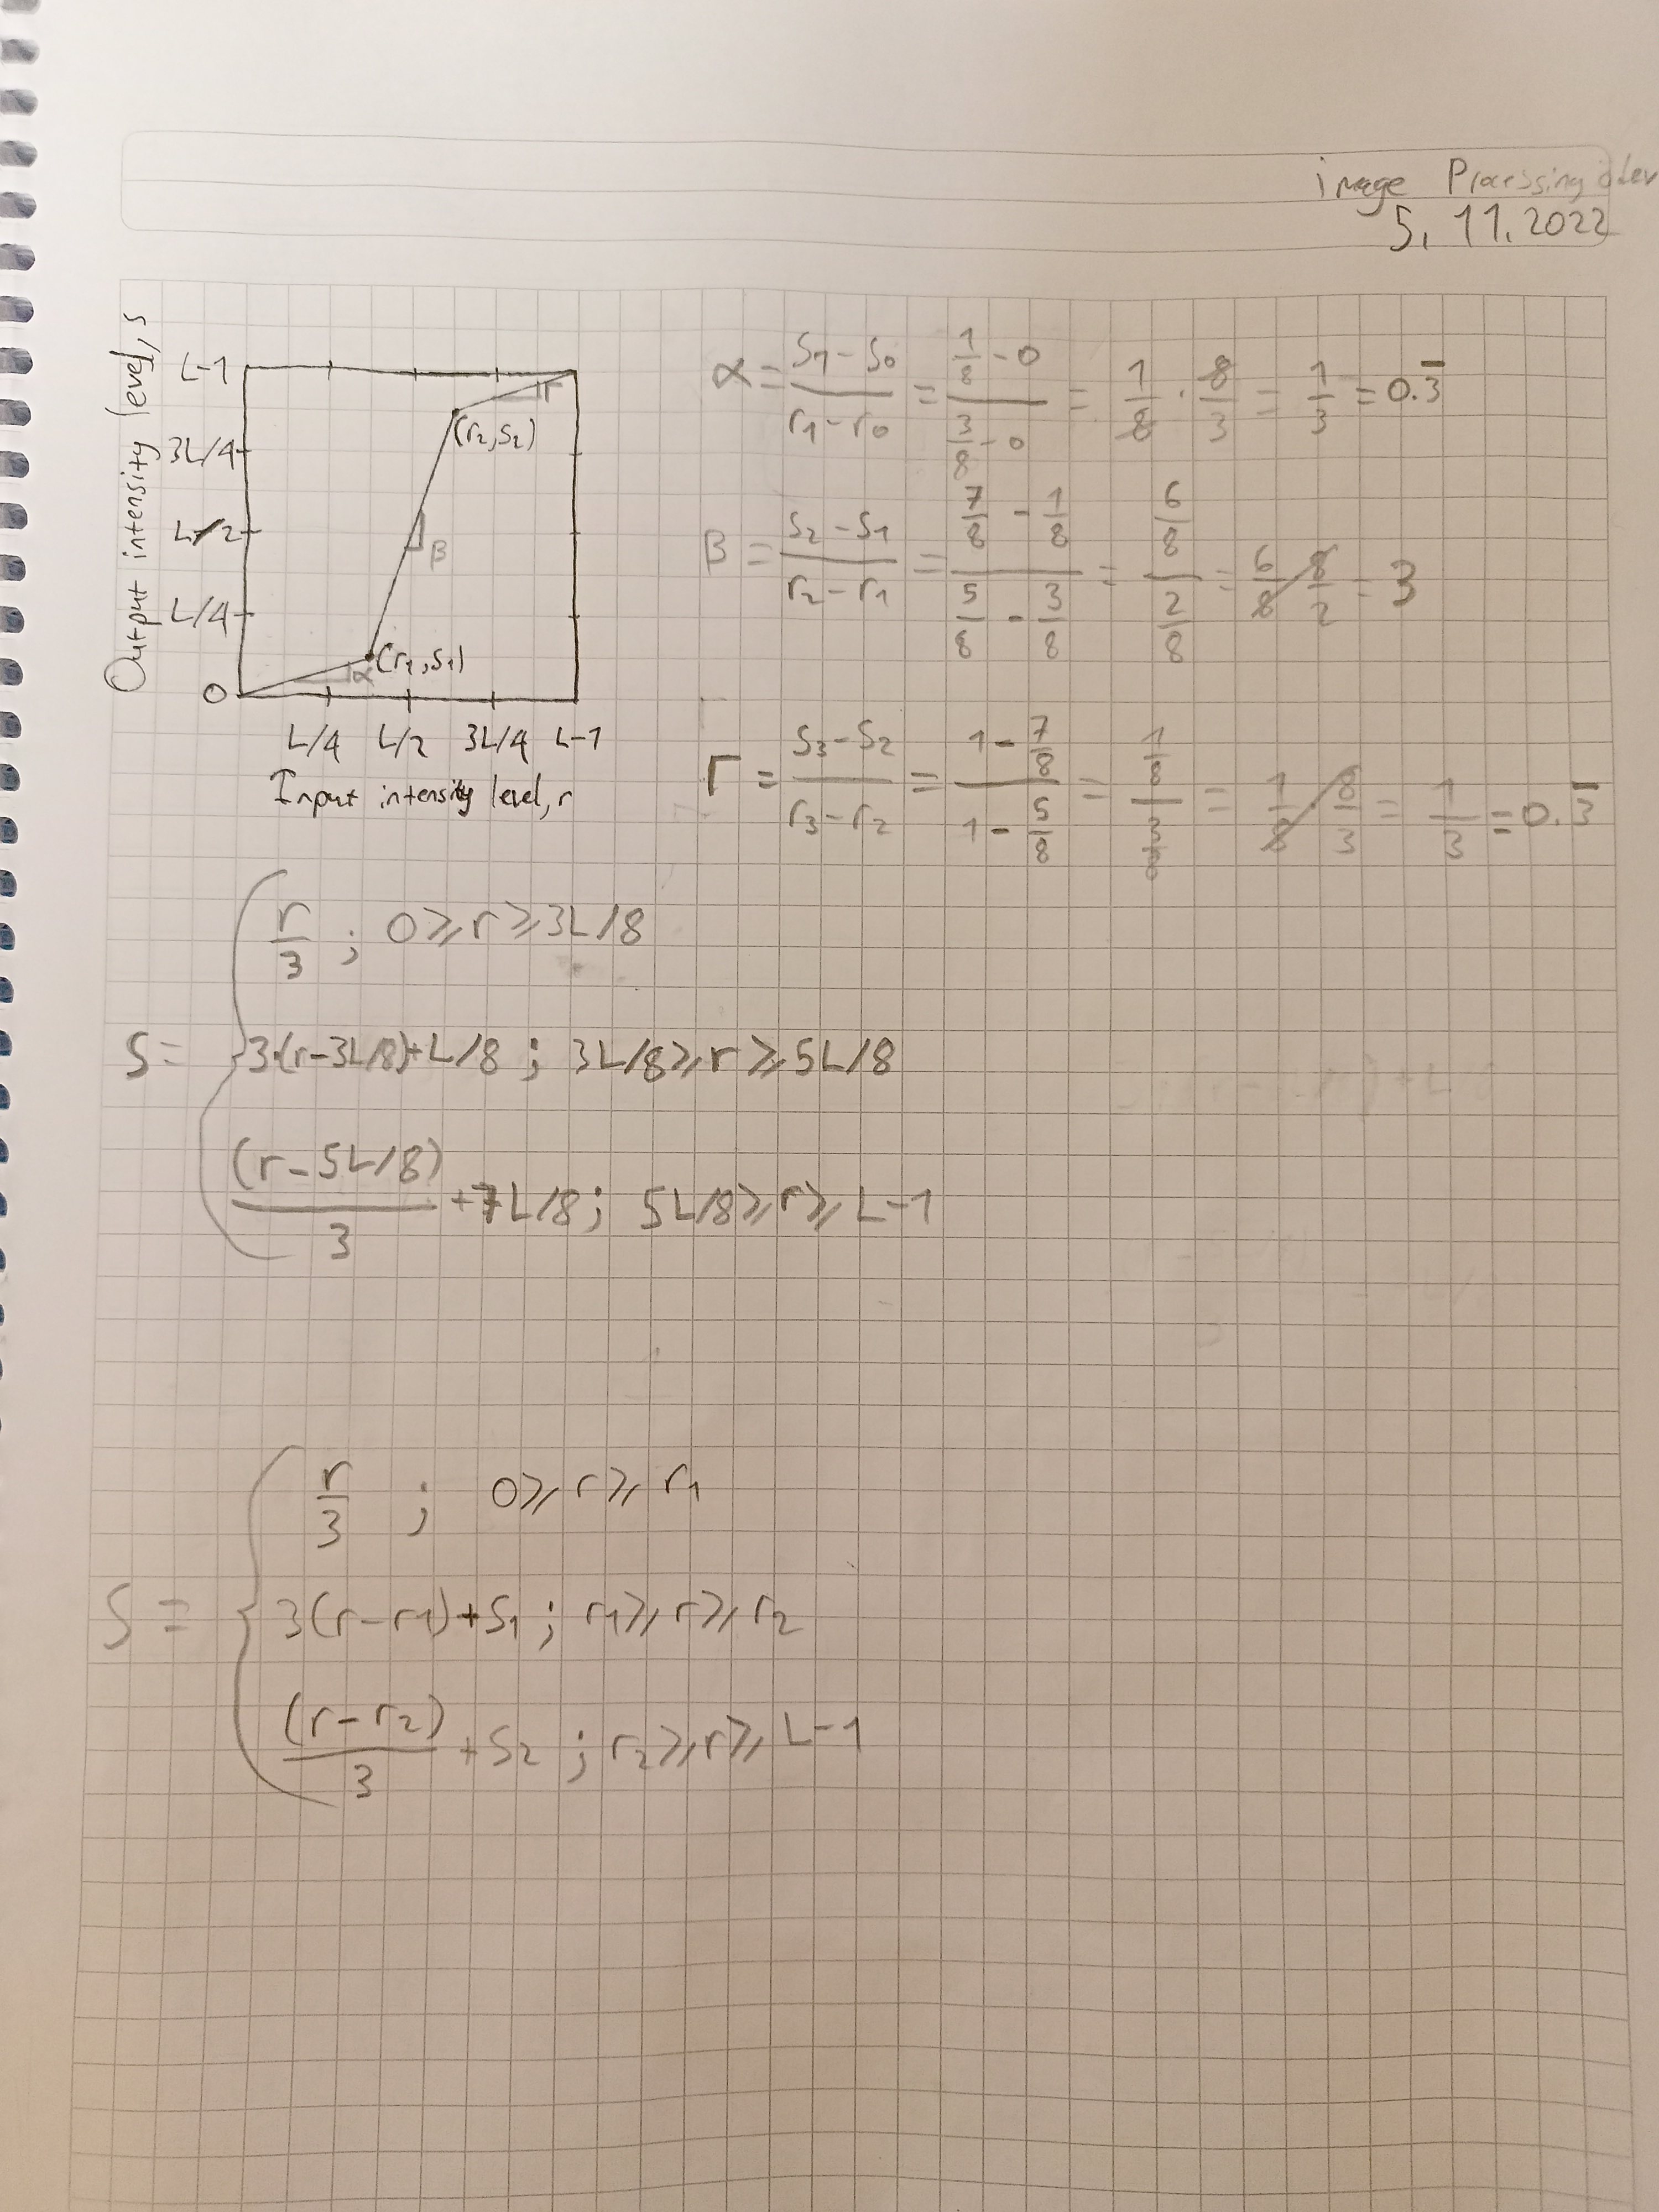 image Processing ödev
5. 11. 2022
Output intensity level, s
L-1
3L/4
L/2
L/4
0
(r₂,s₂)
Γ
β
(r₁,s₁)
α
L/4 L/2 3L/4 L-1
Input intensity level, r
α = (s₁ - s₀)/(r₁ - r₀) = (1/8 - 0)/(3/8 - 0) = 1/8 · 8/3 = 1/3 = 0.3̅
β = (s₂ - s₁)/(r₂ - r₁) = (7/8 - 1/8)/(5/8 - 3/8) = (6/8)/(2/8) = 6/8 · 8/2 = 3
Γ = (s₃ - s₂)/(r₃ - r₂) = (1 - 7/8)/(1 - 5/8) = (1/8)/(3/8) = 1/8 · 8/3 = 1/3 = 0.3̅
r/3 ; 0 ≥ r ≥ 3L/8
S = 3·(r-3L/8)+L/8 ; 3L/8 ≥ r ≥ 5L/8
(r-5L/8)/3 + 7L/8 ; 5L/8 ≥ r ≥ L-1
r/3 ; 0 ≥ r ≥ r₁
S = 3(r-r₁)+S₁ ; r₁ ≥ r ≥ r₂
(r-r₂)/3 + S₂ ; r₂ ≥ r ≥ L-1